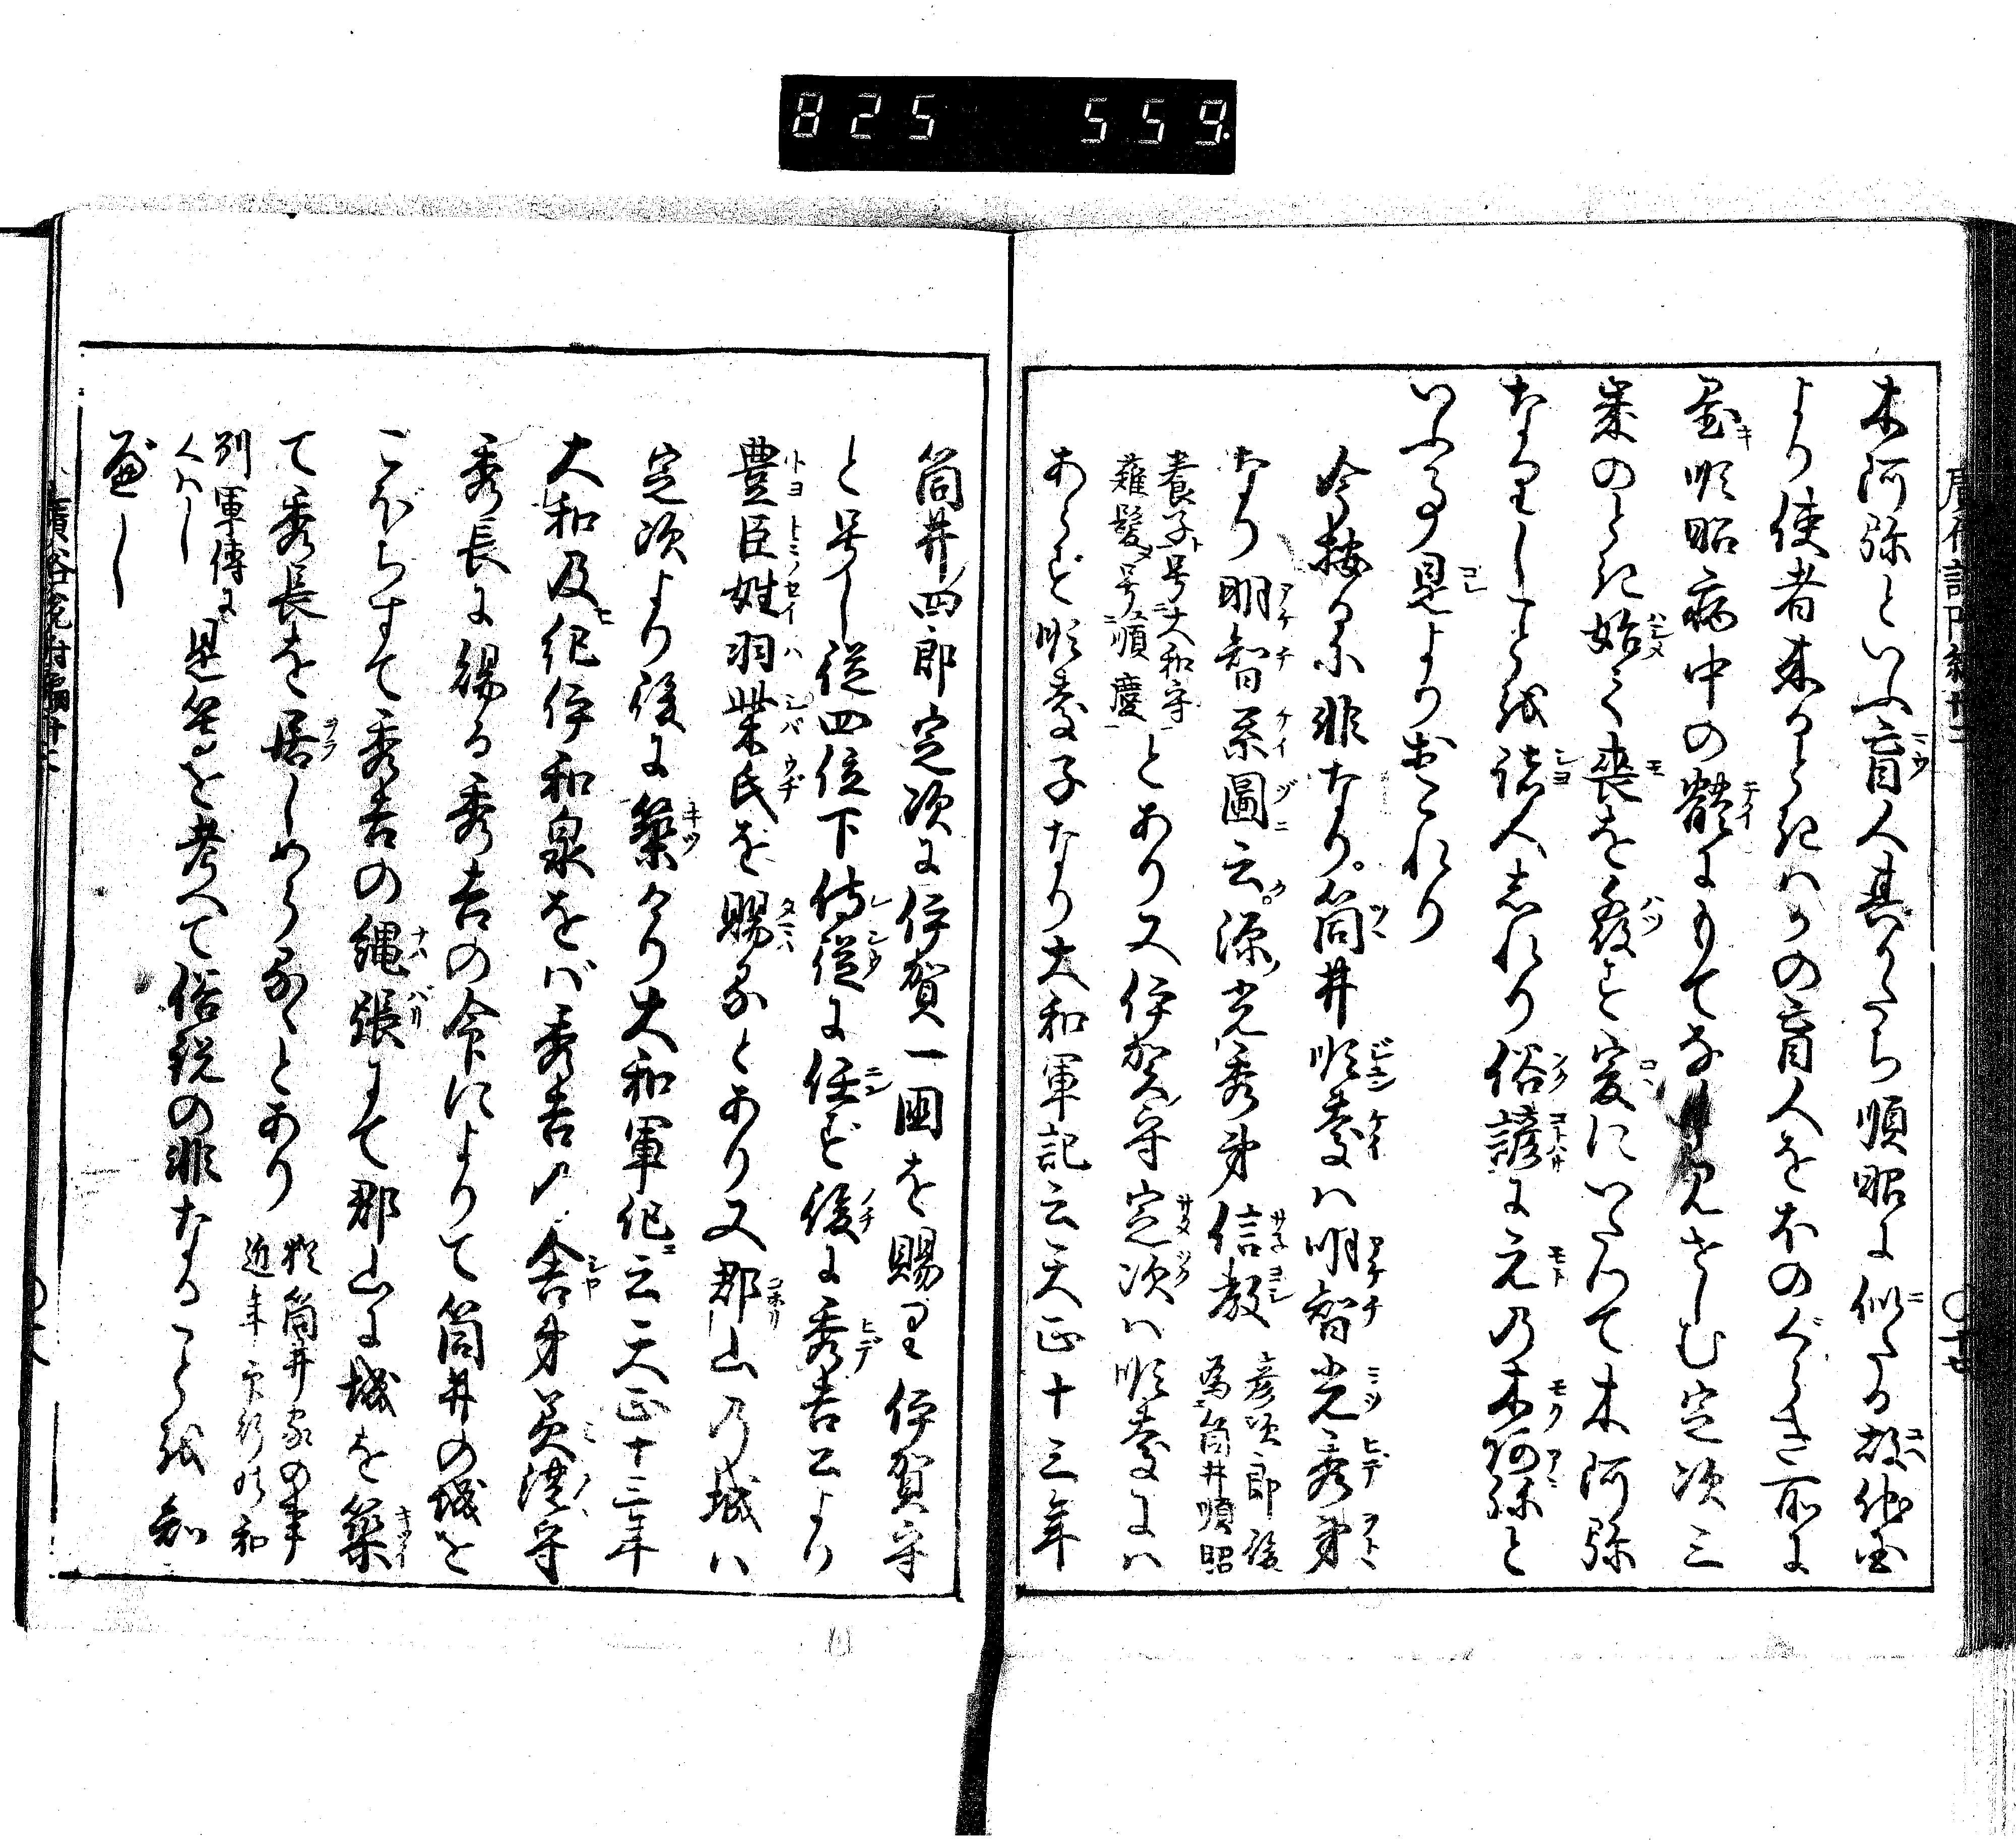 825 559
木阿弥といふ盲人其かたち順昭に似たる故他国
より使者来るときハかの盲人をほのぐらき所に
置順昭病中の體にもてなし見せしむ定次三
歳のとき始て喪を發す爰にいたつて木阿弥
なりしことを諸人しれり俗諺に元の木阿弥と
いふ事是より出たり
今按るに非なり。筒井順慶ハ明智光秀弟
なり明智系圖云。源光秀弟信教
彦次郎後
為筒井順昭
養子号大和守
薙髪号順慶
とあり又伊賀守定次ハ順慶にハ
あらず順慶子なり大和軍記云天正十三年
筒井四郎定次に伊賀一国を賜り伊賀守
と号し従四位下侍従に任ず後に秀吉公より
豊臣姓羽柴氏を賜ふとあり又郡山の城ハ
定次より後に築けり大和軍記云天正十三年
大和及紀伊和泉をバ秀吉ノ舎弟美濃守
秀長に賜る秀吉の命によりて筒井の城を
こぼちすて秀吉の縄張にて郡山に城を築
て秀長を居しめらるゝとあり
猶筒井家の事
近年印行の和
別軍傳に
くハし
是等を考へて俗説の非なることを知
べし
廣益俗説辨附編廿二